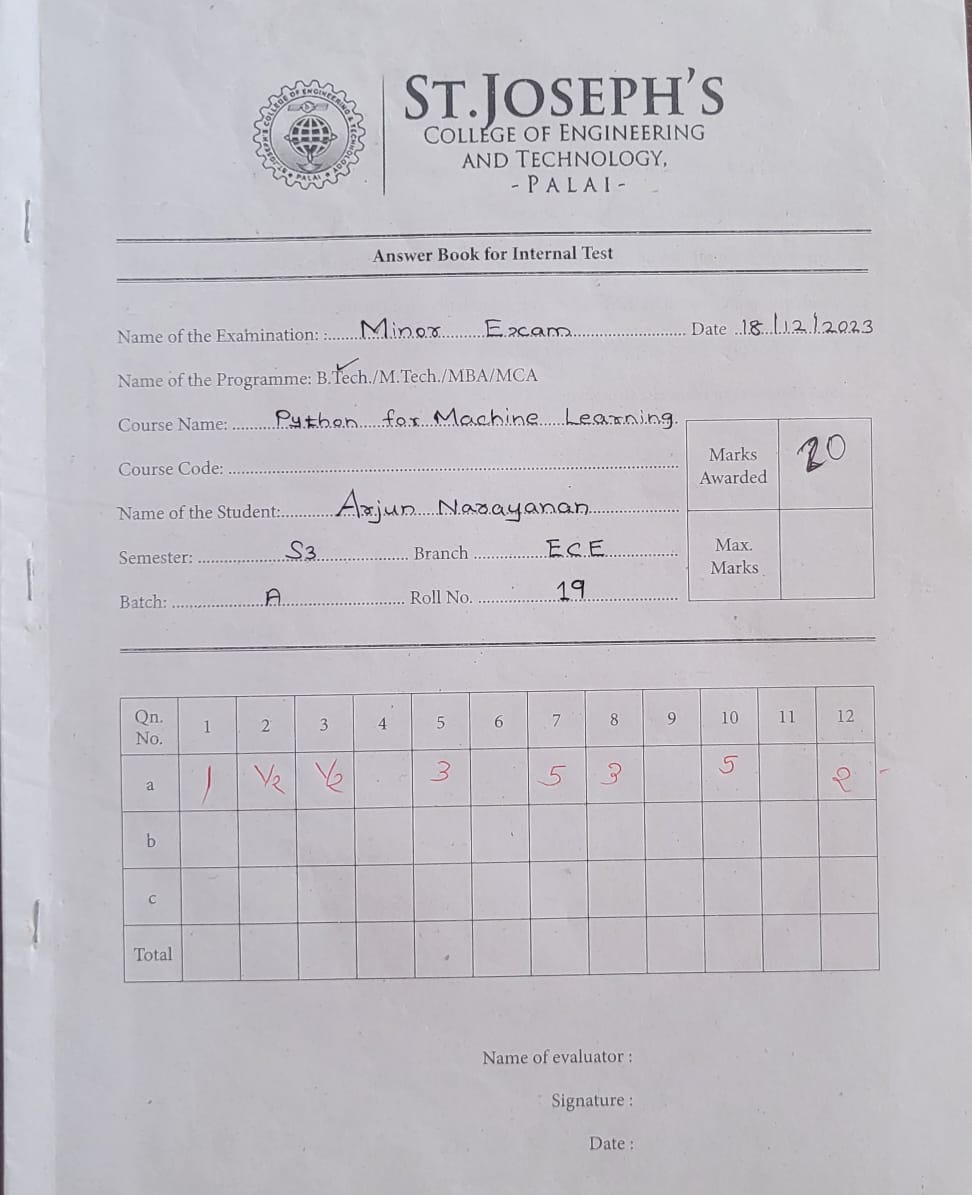 ST.JOSEPH'S
COLLEGE OF ENGINEERING
AND TECHNOLOGY,
- PALAI -
Answer Book for Internal Test
Name of the Examination: : Minor Exam Date 18/12/2023
Name of the Programme: B.Tech./M.Tech./MBA/MCA
Course Name: Python for Machine Learning.
Course Code:
Name of the Student: Arjun Narayanan
Semester: S3 Branch ECE
Batch: A Roll No. 19
Marks Awarded 20
Max. Marks
Qn. No. 1 2 3 4 5 6 7 8 9 10 11 12
a 1 1/2 1/2 3 5 3 5 2
b
c
Total
Name of evaluator :
Signature :
Date :